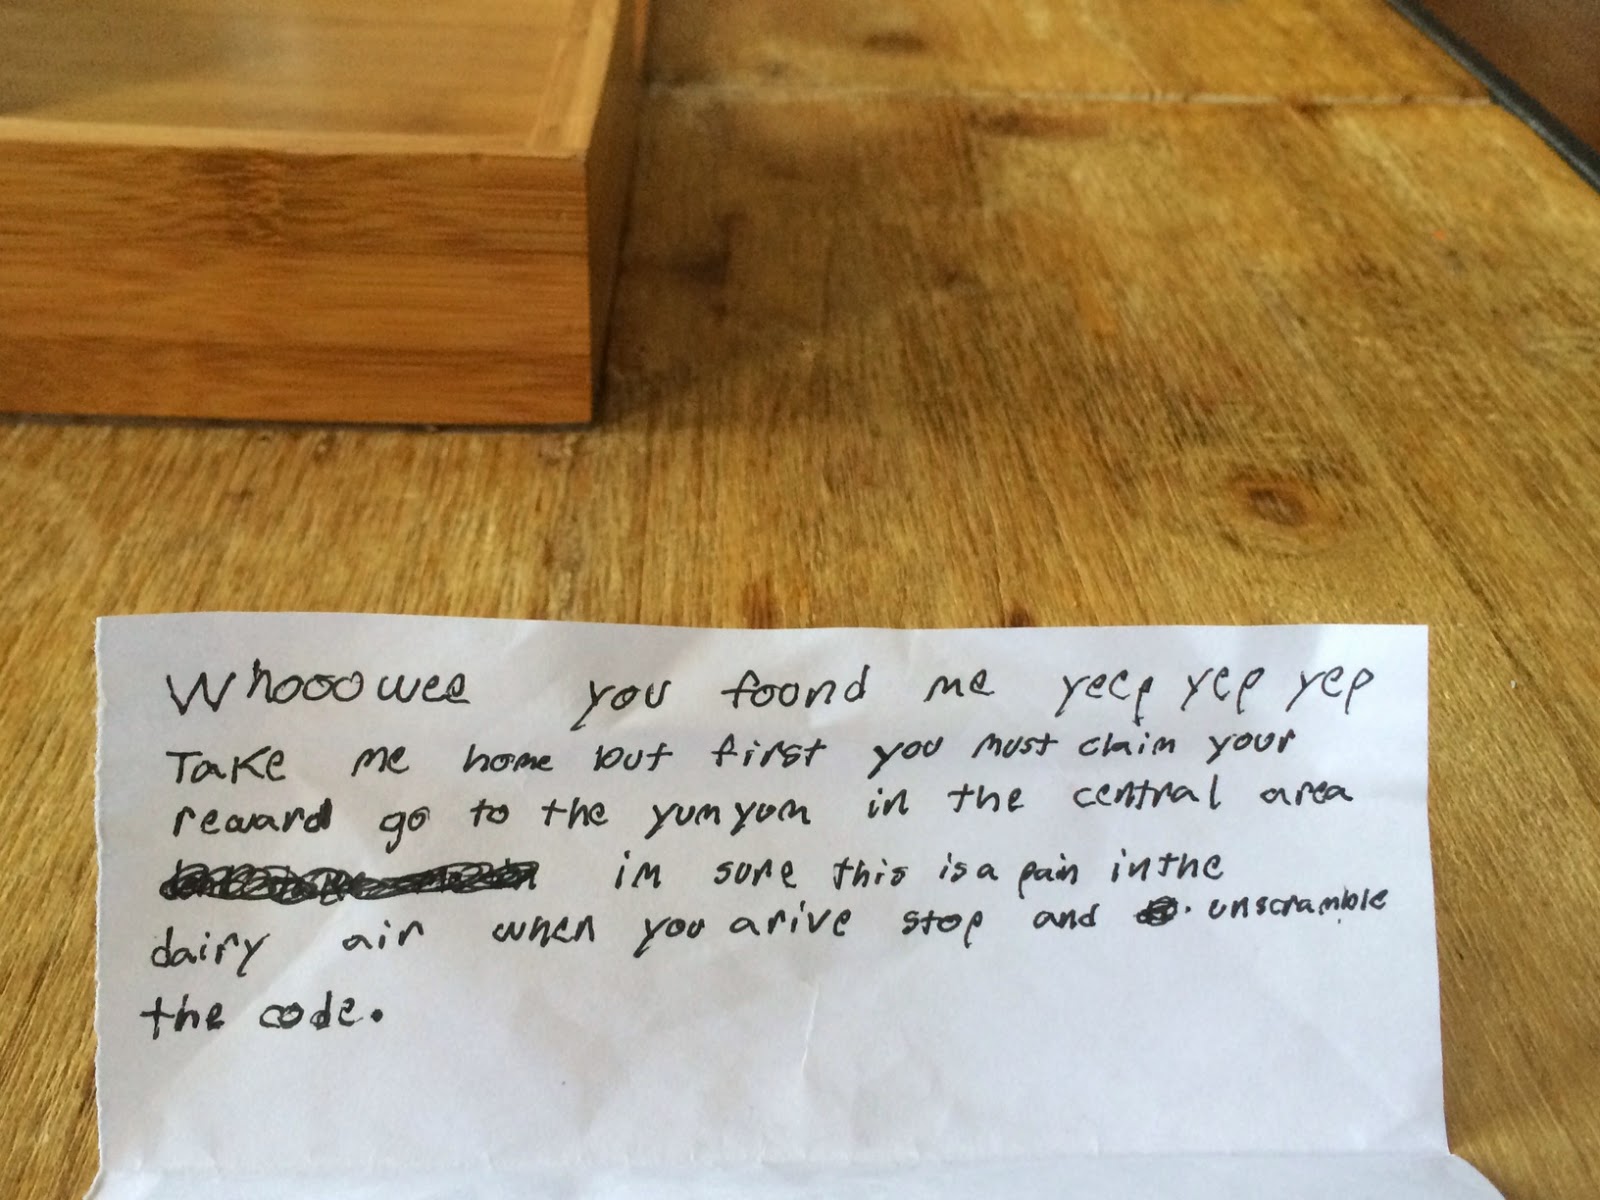 Whooowee you foond me yeep yep yep
Take me home but first you must claim your
reward go to the yumyum in the central area
im sure this is a pain in the
dairy air when you arive stop and unscramble
the code.